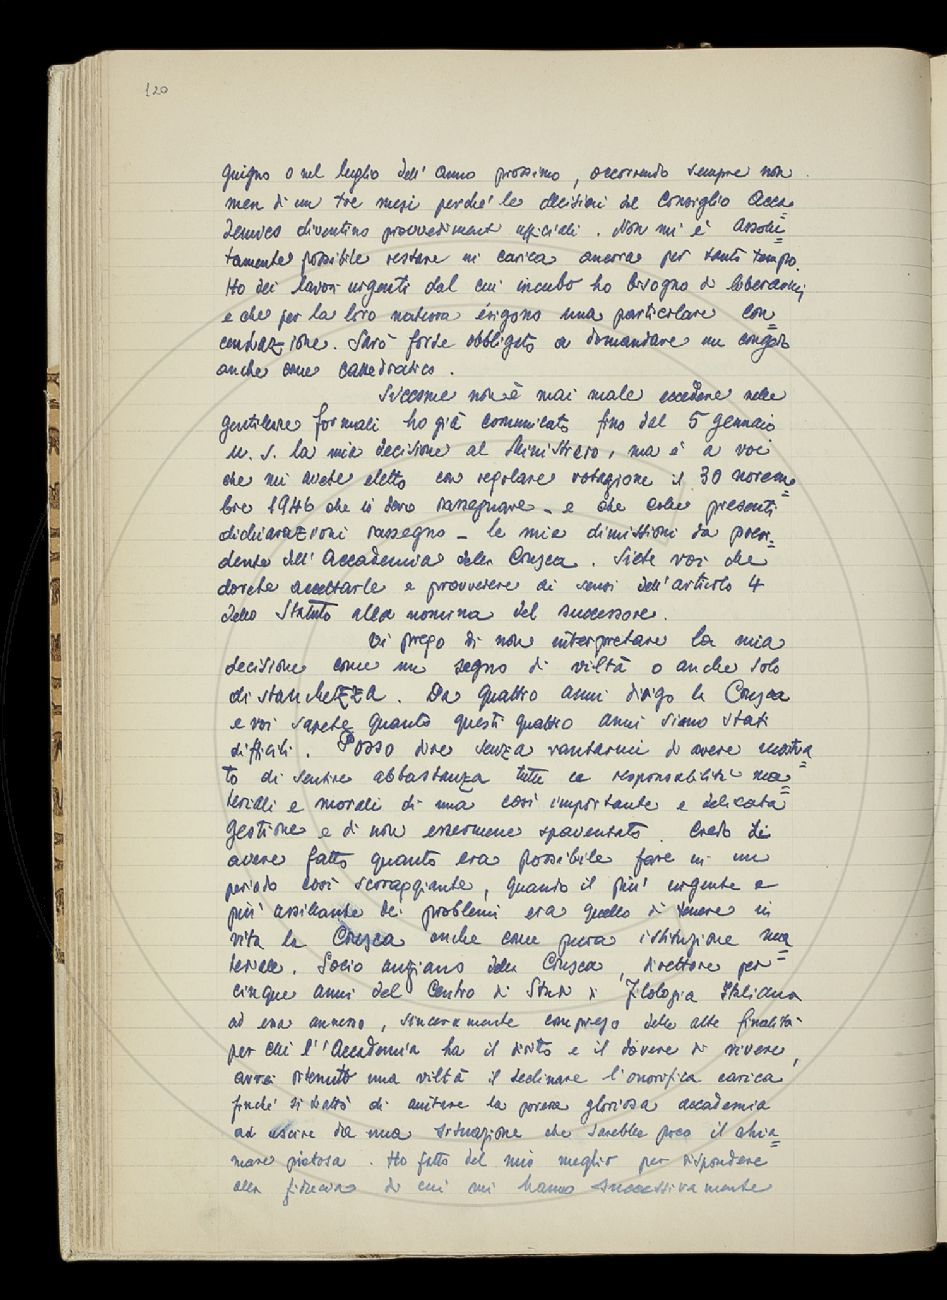 120
giugno o nel luglio dell'anno prossimo, occorrendo sempre non
men di un tre mesi perché le decisioni del Consiglio Acca=
demico diventino provvedimenti ufficiali. Non mi è assolu=
tamente possibile restare in carica ancora per tanto tempo.
Ho dei lavori urgenti dal cui incubo ho bisogno di liberarmi
e che per la loro natura esigono una particolare con=
centrazione. Sarò forse obbligato a domandare un congedo
anche come cattedratico.
Siccome non è mai male eccedere nelle
gentilezze formali ho già comunicato fino dal 5 gennaio
u. s. la mia decisione al Ministero, ma è a voi
che mi avete eletto con regolare votazione il 30 novem=
bre 1946 che io devo rassegnare - e che colle presenti
dichiarazioni rassegno - le mie dimissioni da presi=
dente dell'Accademia della Crusca. Siete voi che
dovete accettarle e provvedere ai sensi dell'articolo 4
dello Statuto alla nomina del successore.
Vi prego di non interpretare la mia
decisione come un segno di viltà o anche solo
di stanchezza. Da quattro anni dirigo la Crusca
e voi sapete quanto questi quattro anni siano stati
difficili. Posso dire senza vantarmi di avere mostra=
to di sentire abbastanza tutte le responsabilità ma=
teriali e morali di una così importante e delicata
gestione e di non essermene spaventato. Credo di
avere fatto quanto era possibile fare in un
periodo così scoraggiante, quando il più urgente e
più assillante dei problemi era quello di tenere in
vita la Crusca anche come pura istituzione ma=
teriale. Socio anziano della Crusca, direttore per
cinque anni del Centro di Studi di Filologia Italiana
ad essa annesso, sinceramente compreso delle alte finalità
per cui l'Accademia ha il diritto e il dovere di vivere,
avrei ritenuto una viltà il declinare l'onorifica carica
finché si trattò di aiutare la povera gloriosa accademia
ad uscire da una situazione che sarebbe poco il chia=
mare pietosa. Ho fatto del mio meglio per rispondere
alla fiducia di cui mi hanno successivamente